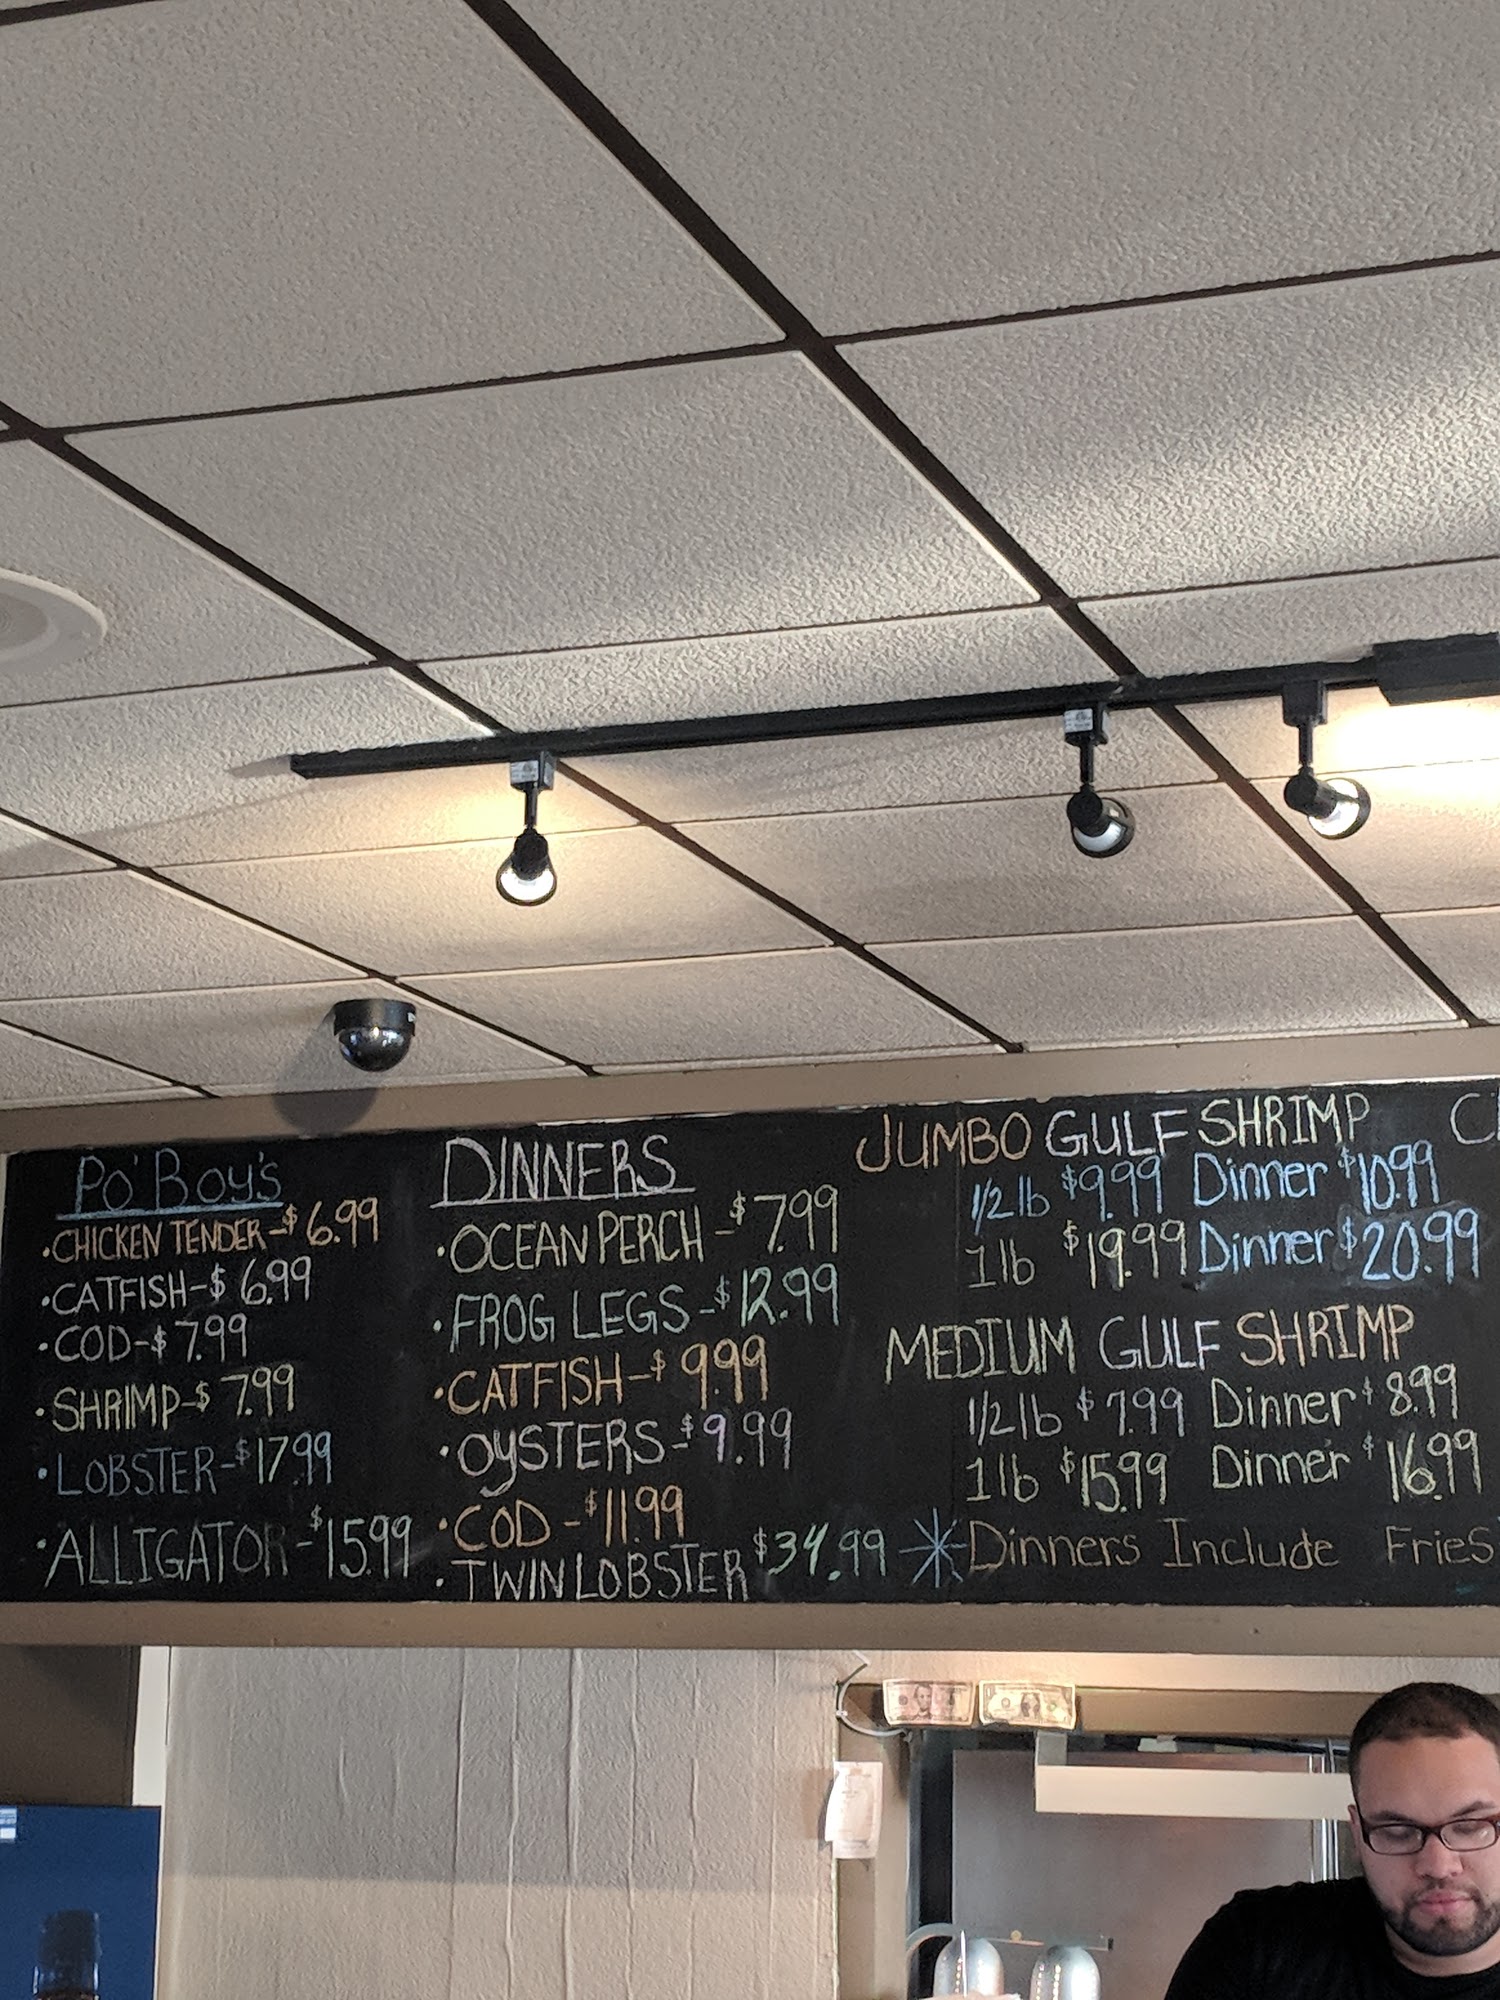 PO' BOY'S
• CHICKEN TENDER - $6.99
• CATFISH - $6.99
• COD - $7.99
• SHRIMP - $7.99
• LOBSTER - $17.99
• ALLIGATOR - $15.99
DINNERS
• OCEAN PERCH - $7.99
• FROG LEGS - $12.99
• CATFISH - $9.99
• OYSTERS - $9.99
• COD - $11.99
• TWIN LOBSTER $34.99
JUMBO GULF SHRIMP
1/2 lb $9.99 Dinner $10.99
1 lb $19.99 Dinner $20.99
MEDIUM GULF SHRIMP
1/2 lb $7.99 Dinner $8.99
1 lb $15.99 Dinner $16.99
* Dinners Include Fries